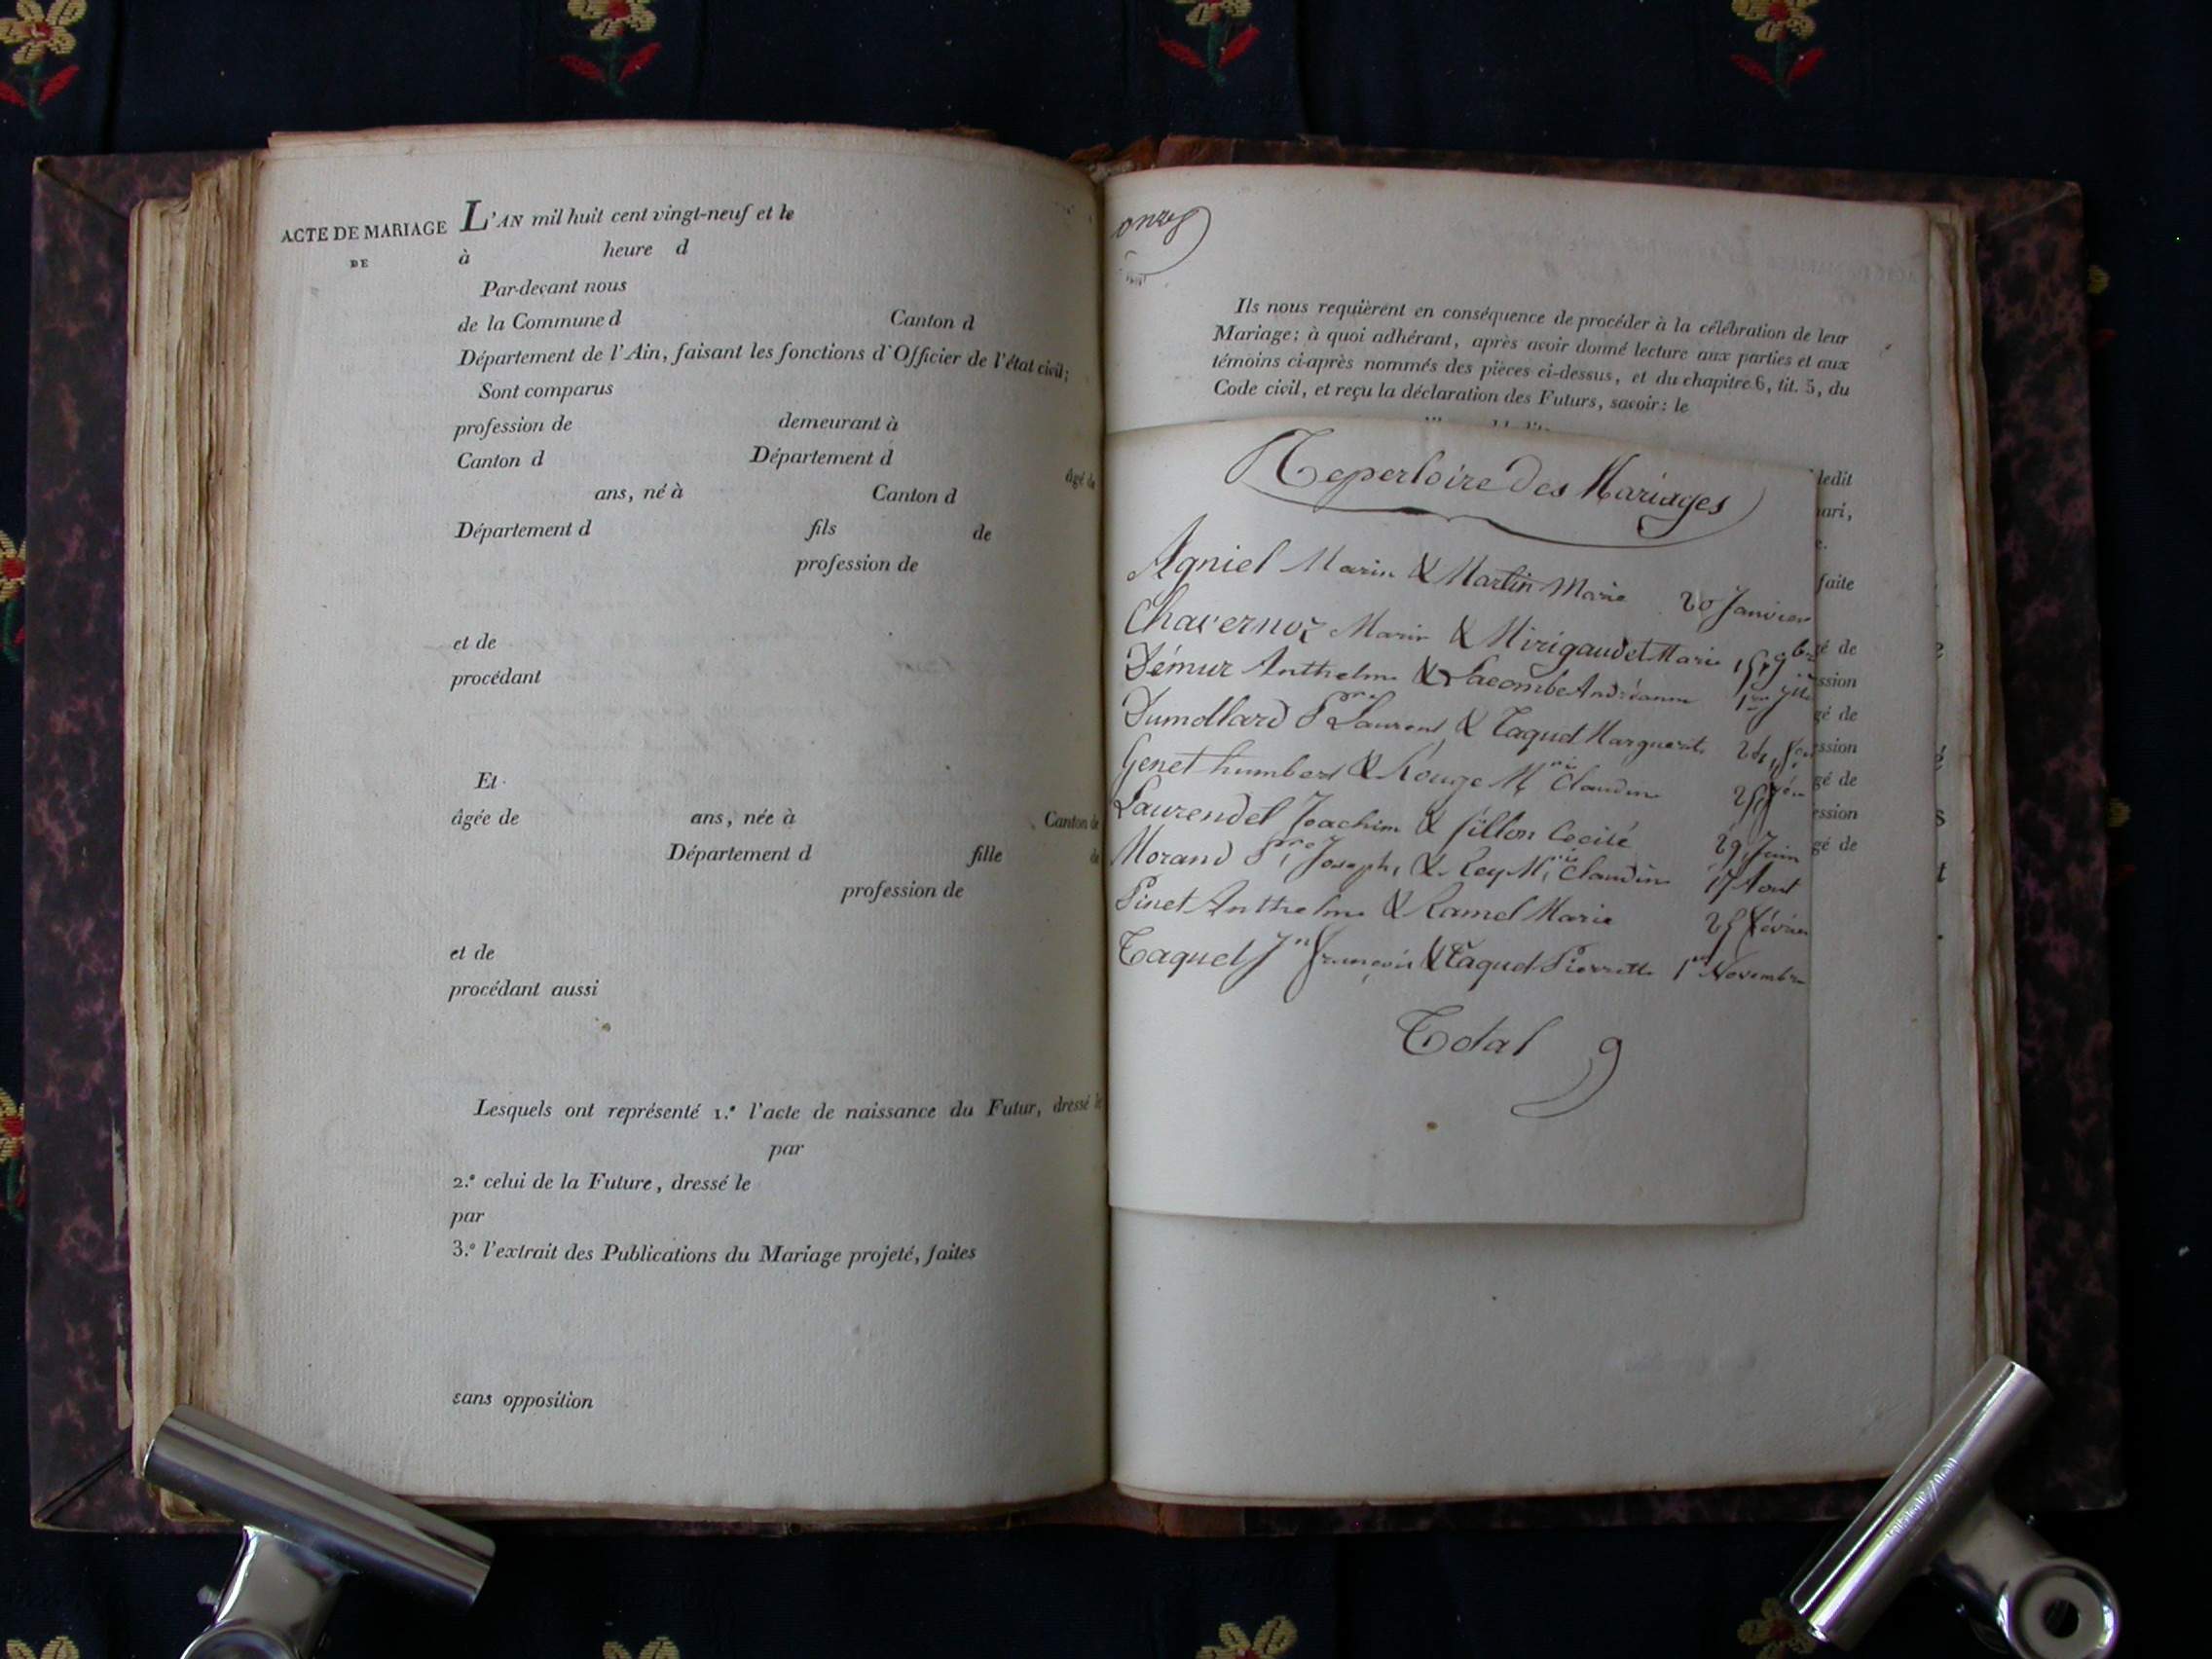 ACTE DE MARIAGE
DE
L'AN mil huit cent vingt-neuf et le
à heure d
Par-devant nous
de la Commune d Canton d
Département de l'Ain, faisant les fonctions d'Officier de l'état civil;
Sont comparus
profession de demeurant à
Canton d Département d
âgé de
ans, né à Canton d
Département d fils de
profession de
et de
procédant
Et
âgée de ans, née à Canton de
Département d fille de
profession de
et de
procédant aussi
Lesquels ont représenté 1.° l'acte de naissance du Futur, dressé le
par
2.° celui de la Future, dressé le
par
3.° l'extrait des Publications du Mariage projeté, faites
sans opposition
onze
Ils nous requièrent en conséquence de procéder à la célébration de leur
Mariage; à quoi adhérant, après avoir donné lecture aux parties et aux
témoins ci-après nommés des pièces ci-dessus, et du chapitre 6, tit. 5, du
Code civil, et reçu la déclaration des Futurs, savoir: le
Repertoire Des Mariages
Agniel Marin & Martin Marie 20 Janvier
Chavernoz Marin & Mirigaudet Marie 15 9bre
Démur Anthelme & Lacombe Andréanne 1er
Dumollard Pre Laurent & Taquet Marguerite 24
Genet humbert & Rouge Mrie Claudine 25
Laurendet Joachim & fillon Cecile 29 Juin
Morand Pre Joseph, & Rey Mrie Claudine 17 Aout
Pinet Anthelme & Ramel Marie 25 Février
Taquet Jn François & Taquet Pierrette 1er Novembre
Total 9
ledit
mari,
faite
gé de
ssion
gé de
ssion
gé de
ession
gé de